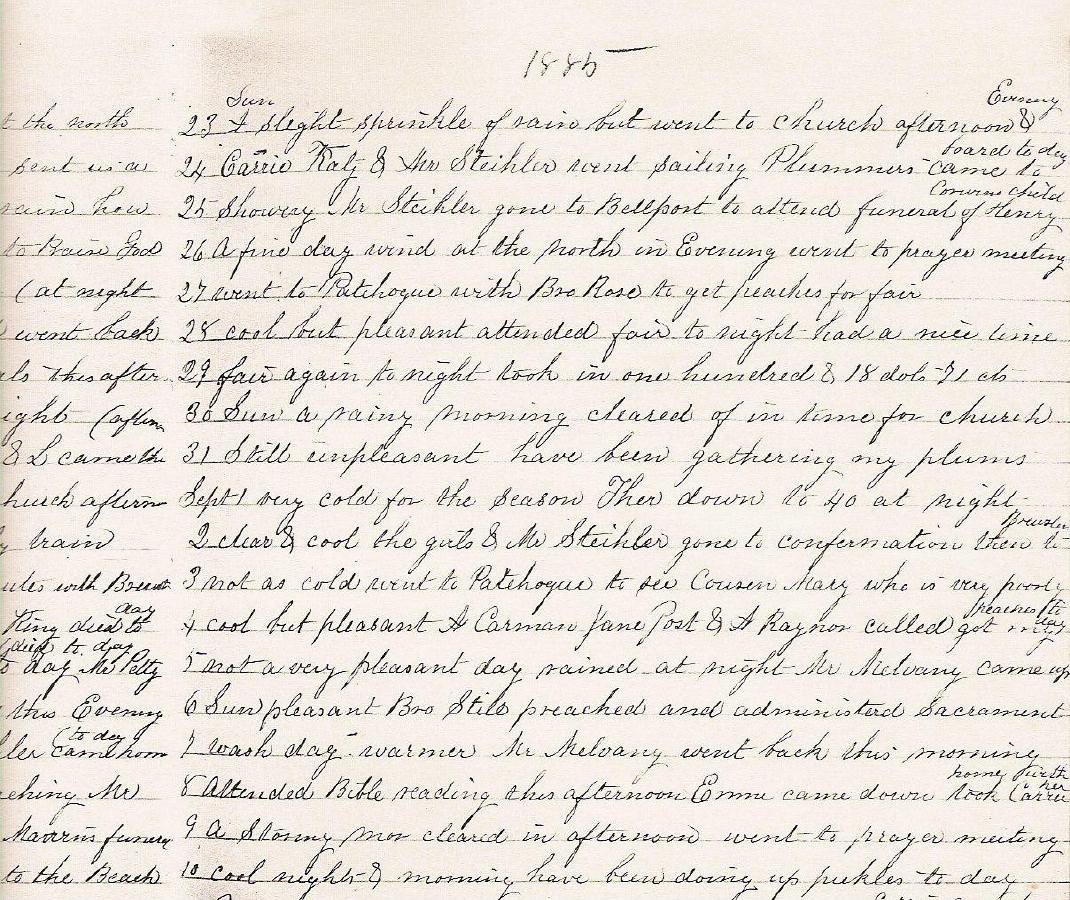 1885
t the north
sent us a
rain how
to Praise God
(at night
went back
als this after
ight (aftern
& L came the
hurch aftern
y train
utes with
day
King died to
died to day
to day Mr Petty
this Evening
to day
ller came hom
eching Mr
funeral
to the Beach
Sun Evening
23 A slight sprinkle of rain but went to church afternoon &
board to day
24 Carrie Katy & Mr Steihler went sailing Plummers came to
25 Showery Mr Steihler gone to Bellport to attend funeral of Henry
26 A fine day wind at the north in Evening went to prayer meeting
27 went to Patchogue with Bro Rose to get peaches for fair
28 cool but pleasant attended fair to night had a nice time
29 fair again to night took in one hundred & 18 dols 71 cts
30 Sun a rainy morning cleared of in time for church
31 Still unpleasant have been gathering my plums
Sept 1 very cold for the season Ther down to 40 at night
2 clear & cool the girls & Mr Steihler gone to confermation then to
3 not as cold went to Patchogue to see Cousen Mary who is very poorly
peaches to
day
4 cool but pleasant A Carman Jane Post & A Raynor called got my
5 not a very pleasant day rained at night Mr Melvany came up
6 Sun pleasant Bro Stile preached and administerd Sacrament
7 wash day warmer Mr Melvany went back this morning
home with
her
8 Attended Bible reading this afternoon Emme came down took Carrie
9 A Stormy mor cleared in afternoon went to prayer meeting
10 cool nights & morning have been doing up pickles to day